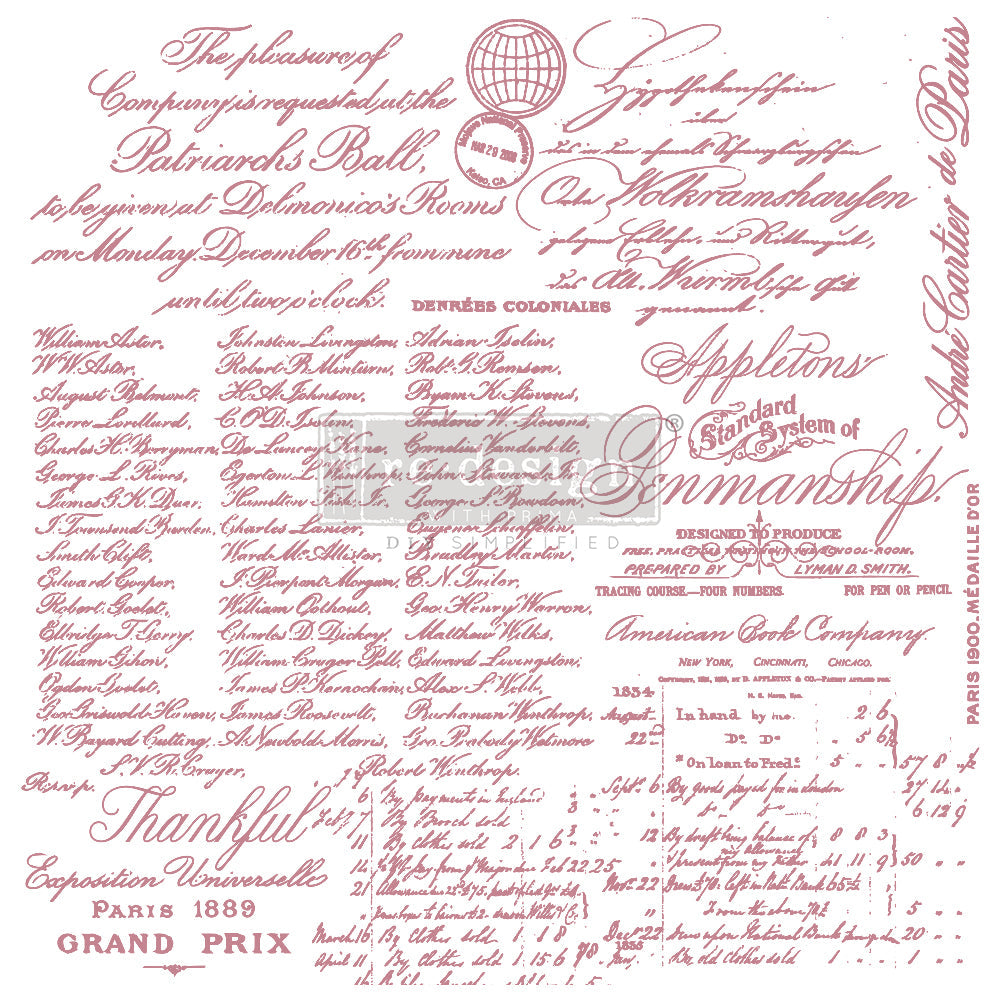 The pleasure of
Company is requested at the
Patriarchs Ball,
to be given at Delmonico's Rooms
on Monday December 16th from nine
until two o'clock.
Mojave National Preserve
MAR 29 2008
Kelso, CA
Hypothekenschein
über
das in dem ehemals Schwarzburgschen
Orte Wolkramshausen
gelegene Erblehn- und Rittergut,
das Alt. Wurmbsche Gut
genannt.
André Cartier de Paris
DENRÉES COLONIALES
William Astor,
W.W. Astor,
August Belmont,
Pierre Lorillard,
Charles H. Berryman,
George L. Rives,
James G.K. Duer,
J. Townsend Burden,
Smith Clift,
Edward Cooper,
Robert Goelet,
Elbridge T. Gerry,
William Gihon,
Ogden Goelet,
Geo. Griswold Haven,
W. Bayard Cutting,
S.V.R. Cruger,
Johnston Livingston,
Robert B. Minturn,
H.A. Johnson,
C.O'D. Iselin,
De Lancey Kane,
Egerton L.
Hamilton
Charles Lanier,
Ward McAllister,
J. Pierpont Morgan,
William Oothout,
Charles D. Dickey,
William Cruger Pell,
James P. Kernochan,
James Roosevelt,
A. Newbold Morris,
Adrian Iselin,
Robt. G. Remsen,
Byam K. Stevens,
Frederic W. Stevens,
Cornelius Vanderbilt,
George S. Bowdoin,
Eugene Schieffelin,
Bradley Martin,
E.N. Tailer,
Geo. Henry Warren,
Matthew Wilks,
Edward Livingston,
Alex S. Webb,
Buchanan Winthrop,
Geo. Peabody Wetmore
Robert Winthrop.
R.s.v.p.
re-design®
WITH PRIMA
DIY SIMPLIFIED
Appletons'
Standard
System of
Penmanship.
DESIGNED TO PRODUCE
PREPARED BY LYMAN D. SMITH.
TRACING COURSE.—FOUR NUMBERS. FOR PEN OR PENCIL
American Book Company.
NEW YORK, CINCINNATI, CHICAGO.
PARIS 1900. MÉDAILLE D'OR
Thankful
Exposition Universelle
PARIS 1889
GRAND PRIX
6 By payments in England
Feb 7 By Brooch sold
11 By Clothes sold 2 1 6
14
21
March 16 By Clothes sold 1 1 8
April 11 By Clothes sold 1 15 6
1834
August In hand by me. 2 6
22nd Do Do 5 6½
* On loan to Fred. 5 57 8
Sept. 6 By goods payed for in london 27 14
6 12 9
12 By draft being balance of 8 8 3
my allowance
41 11 9 50
Nov. 22
From the above 5
Dec 22 20
1835
Jan. By old Clothes sold 1